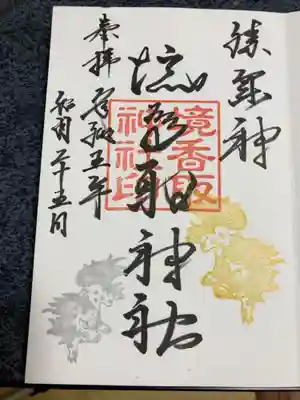 神
境香取神社
境香取
神社印
奉拝 令和五年
月二十五日